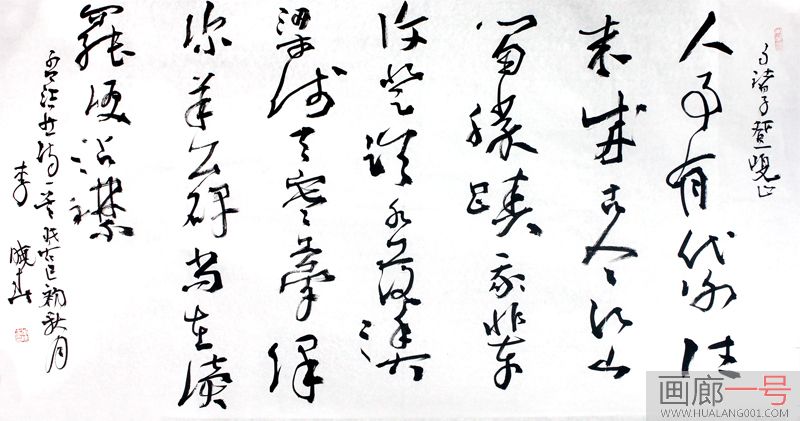 与诸子登岘山
人事有代谢往
来成古今江山
留勝蹟我辈
復登临水落魚
梁浅天寒夢澤
深羊公碑尚在讀
罷淚沾襟
孟浩然诗一首 初秋月
李晓
画廊一号
WWW.HUALANG001.COM